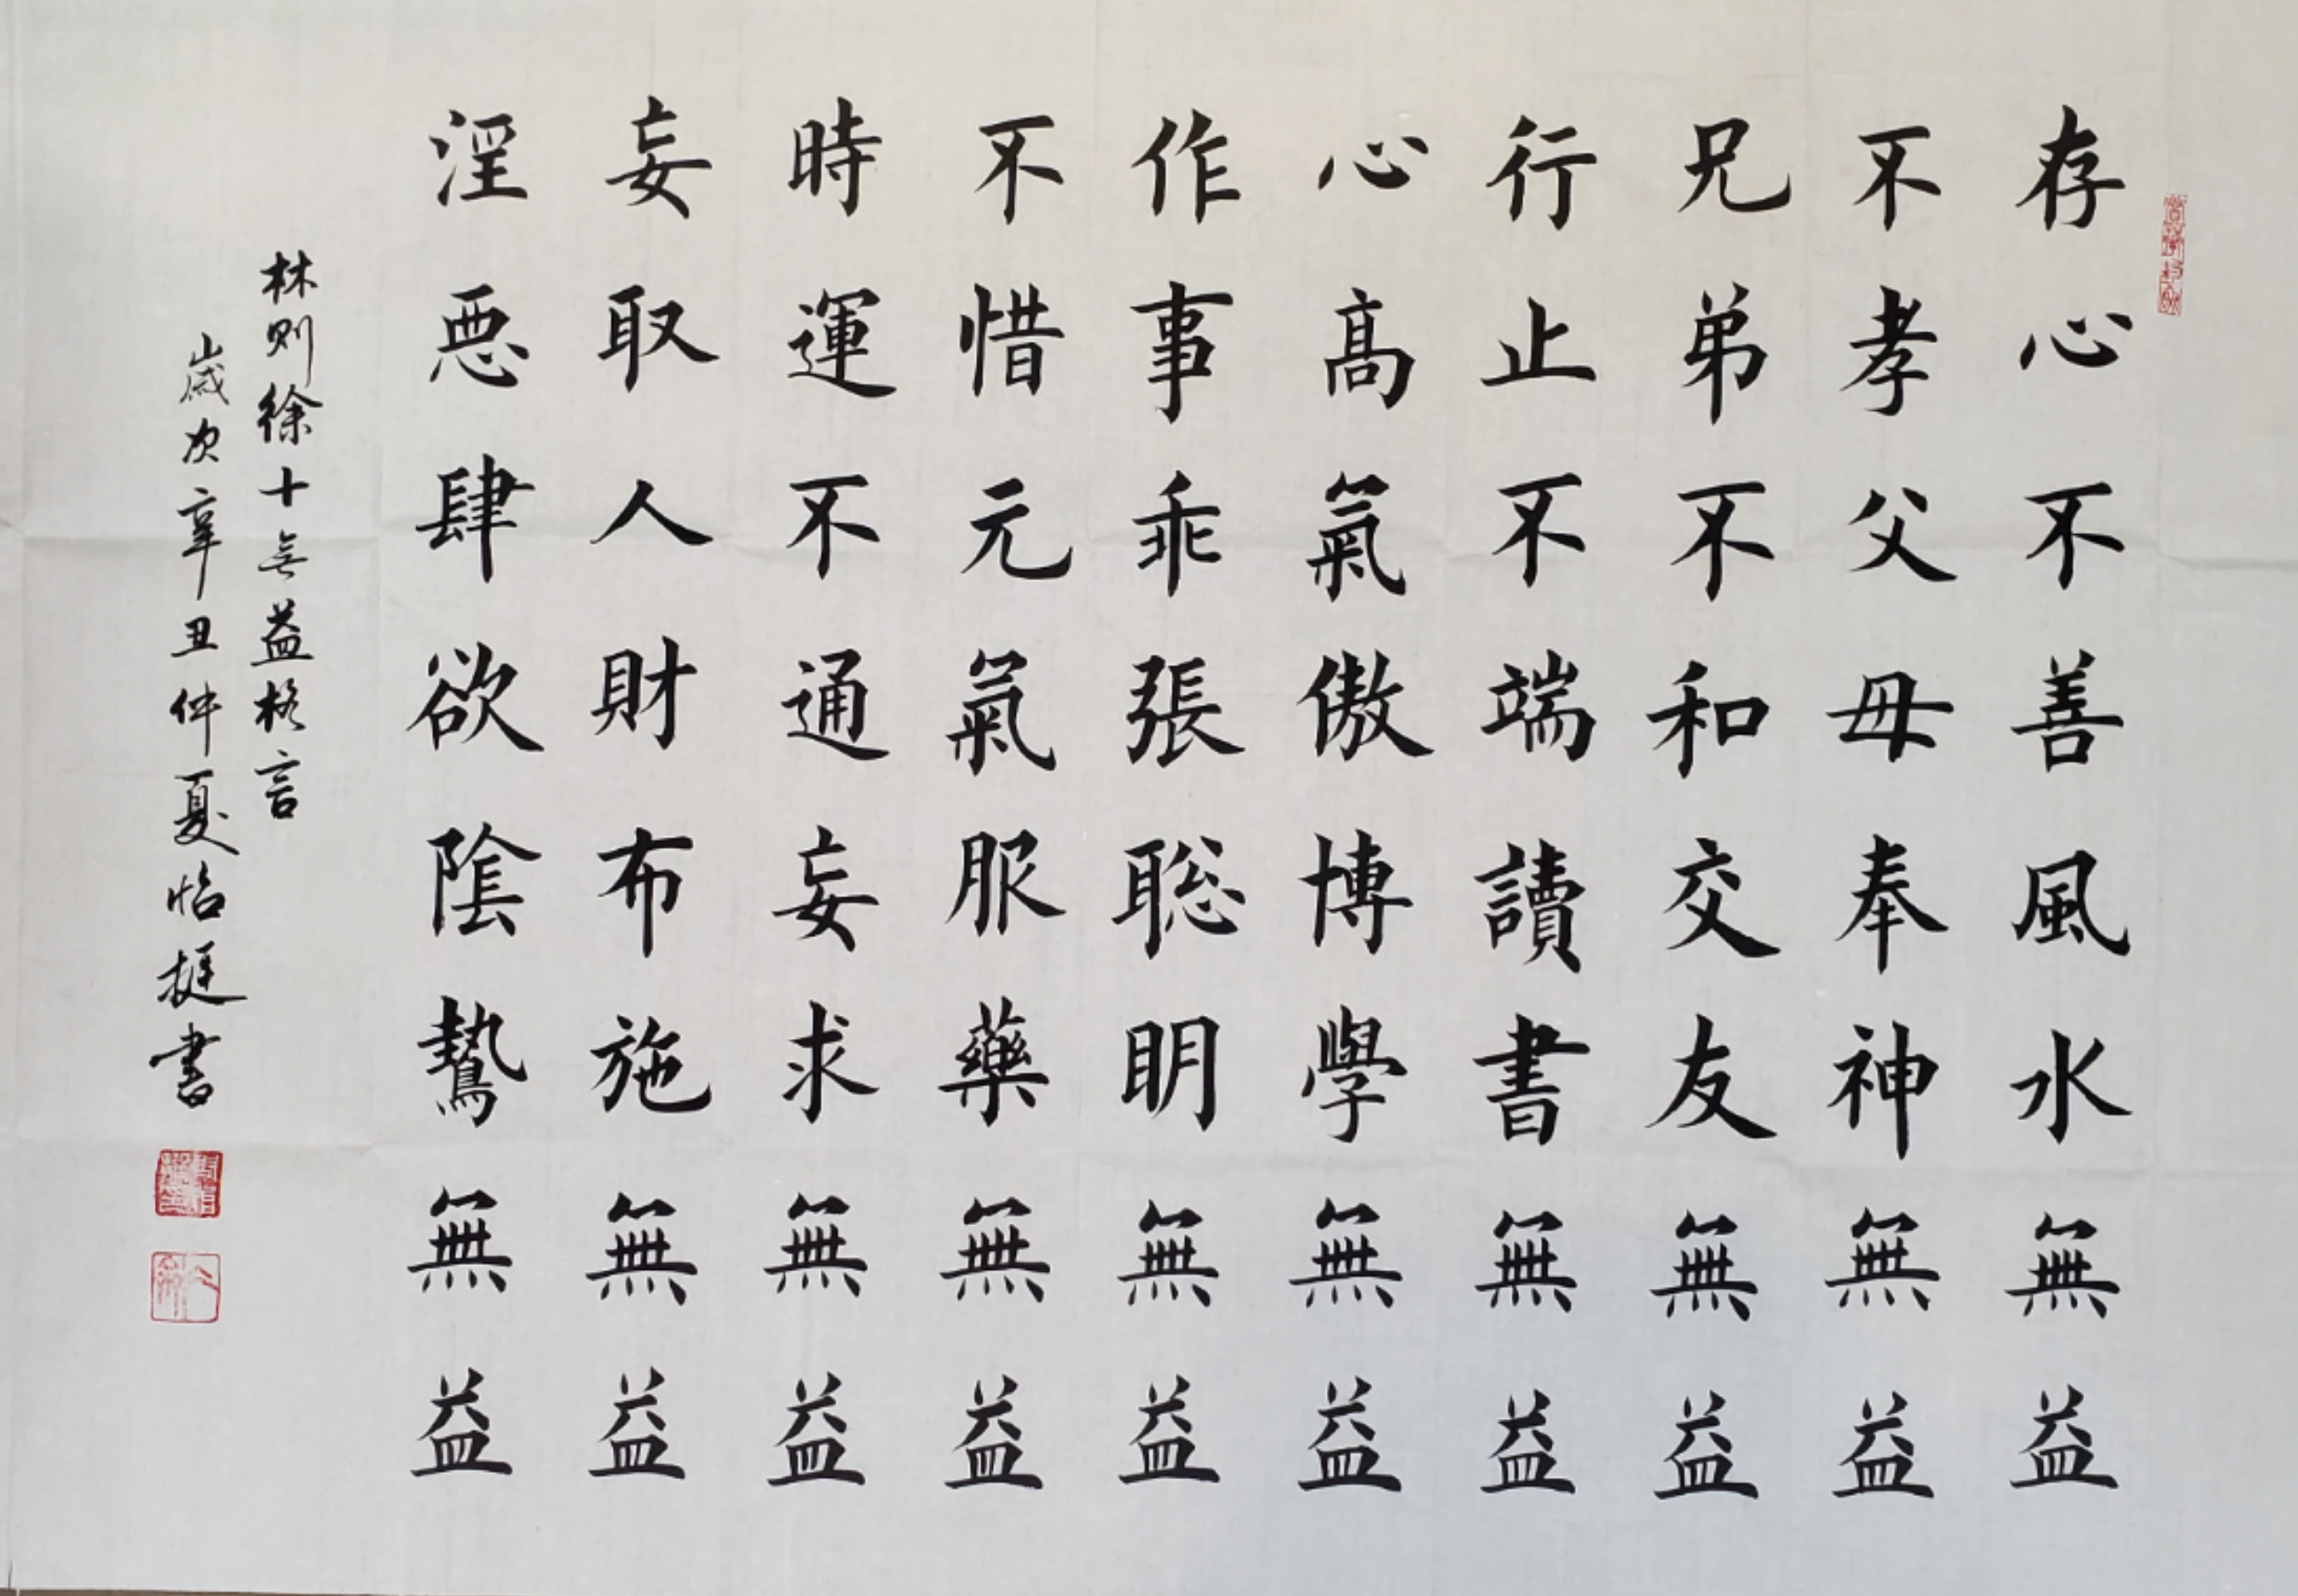 存心不善風水無益
不孝父母奉神無益
兄弟不和交友無益
行止不端讀書無益
心高氣傲博學無益
作事乖張聡明無益
不惜元氣服藥無益
時運不通妄求無益
妄取人財布施無益
淫惡肆欲陰騭無益
林则徐十無益格言
歲次辛丑仲夏怡挺書